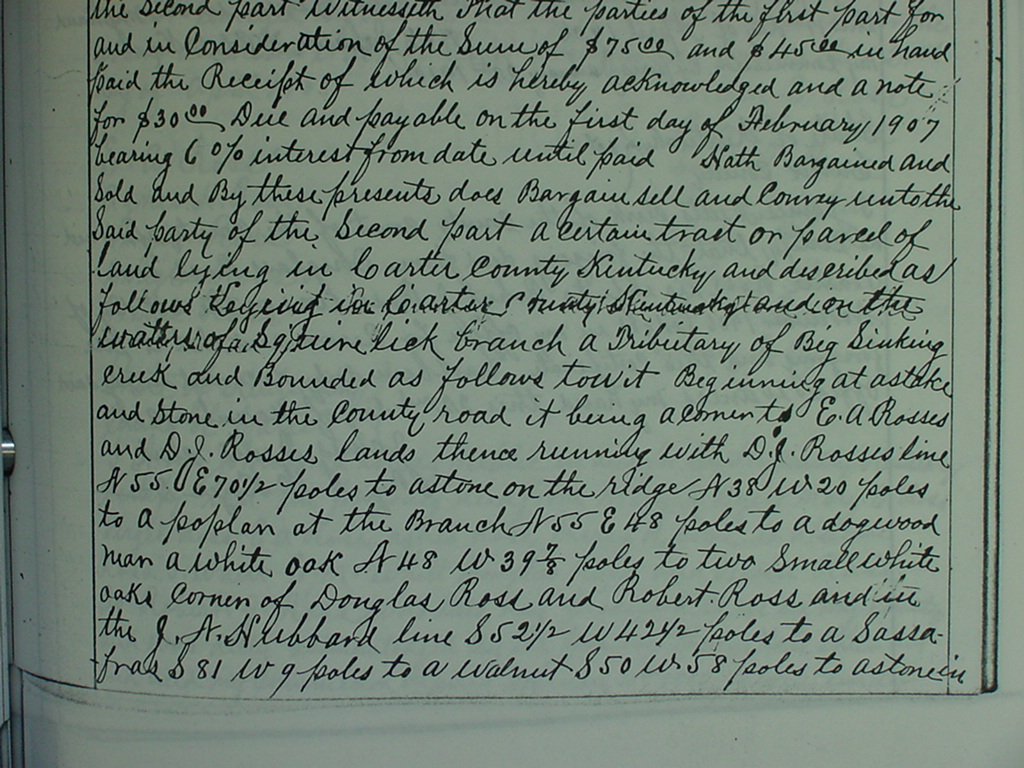 the Second part Witnesseth That the parties of the first part for
and in Consideration of the Sum of $75.00 and $45.00 in hand
paid the Receipt of which is hereby acknowledged and a note
for $30.00 Due and payable on the first day of February 1907
bearing 6 % interest from date until paid Hath Bargained and
Sold and By these presents does Bargain sell and Convey unto the
Said party of the Second part a certain tract or parcel of
land lying in Carter County Kentucky and described as
follows Lying in Carter County Kentucky and on the
waters of a Squirrel lick branch a Tributary of Big Sinking
creek and Bounded as follows towit Beginning at a stake
and Stone in the County road it being a corner to E. A Rosses
and D. J. Rosses lands thence running with D. J. Rosses line
N 55 E 70 1/2 poles to a stone on the ridge N 38 W 20 poles
to a poplar at the Branch N 55 E 48 poles to a dogwood
near a white oak N 48 W 39 7/8 poles to two Small white
oaks Corner of Douglas Ross and Robert Ross and in
the J. N. Hubbard line S 52 1/2 W 42 1/2 poles to a Sassa-
fras S 81 W 9 poles to a walnut S 50 W 58 poles to a stone in